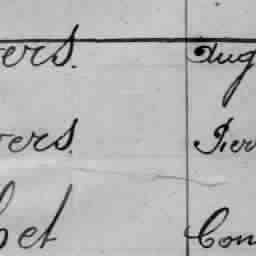 ers. Aug
vers. Pier
bet Con